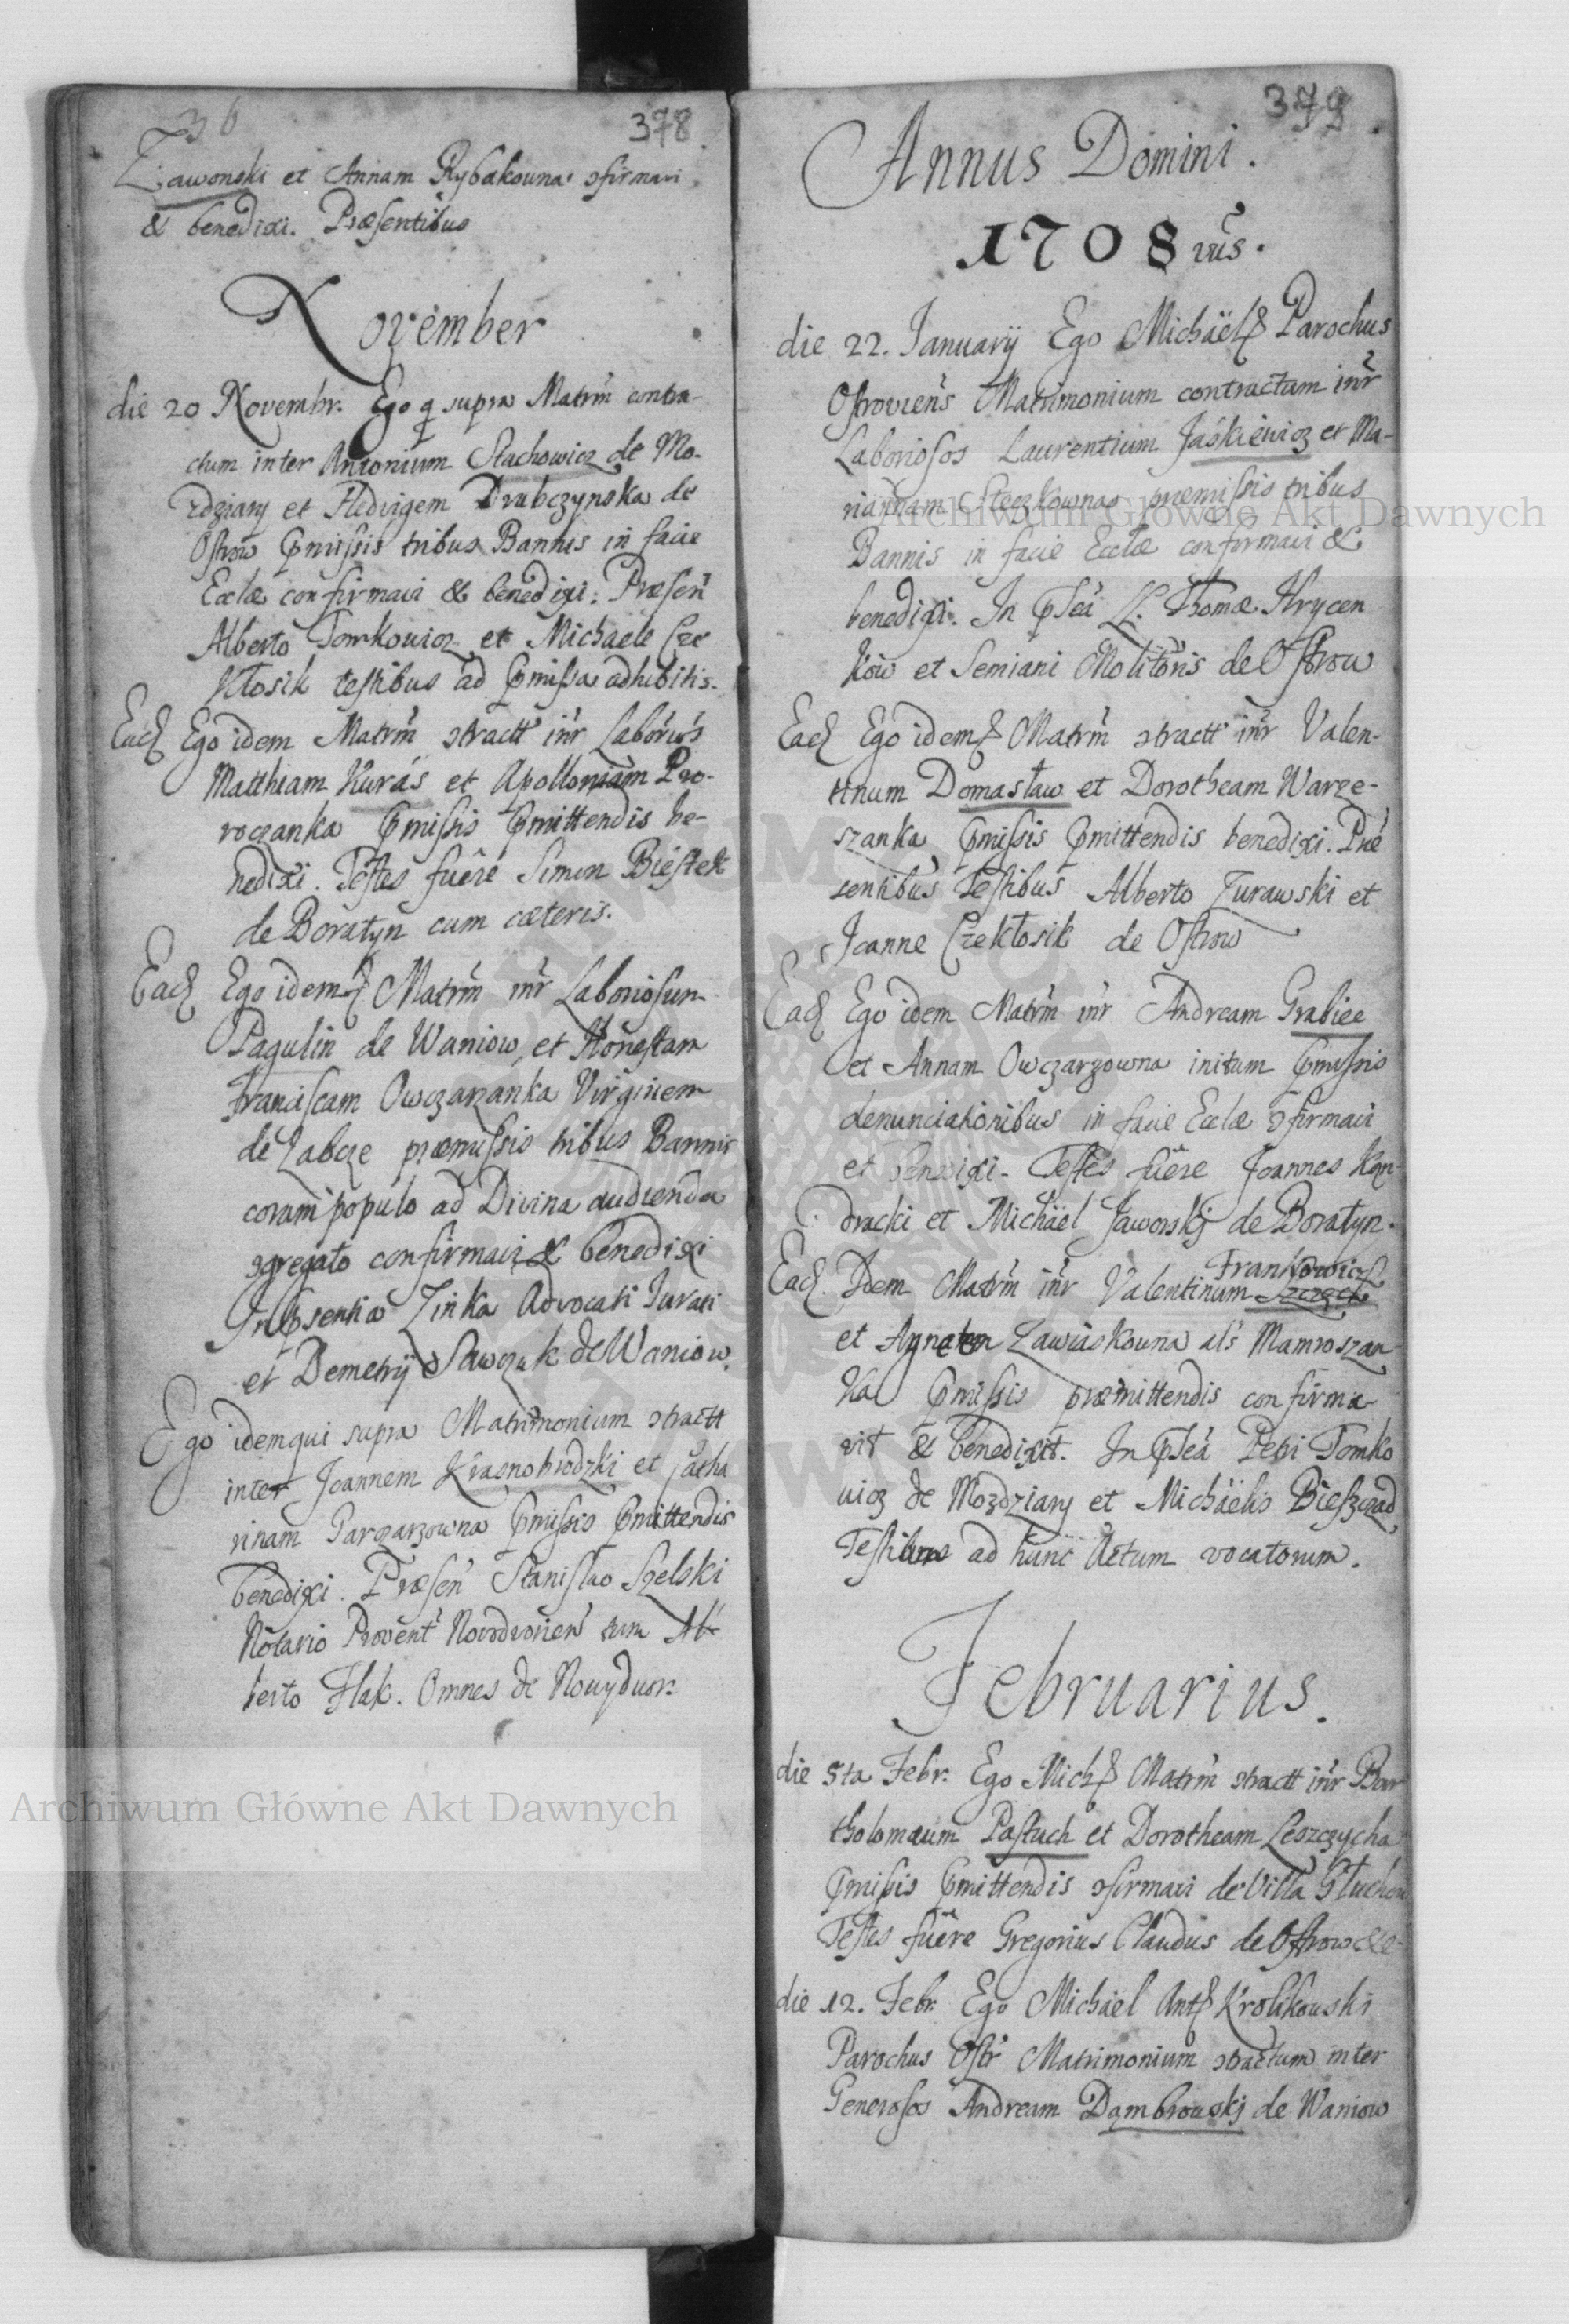 36
378
Zawonski et Annam Rybakouna ɔfirmavi
& benedixi. Præsentibus
November
die 20 Novembr. Ego q supra Matrm contra-
ctum inter Antonium Stachowicz de Mo-
zdziary et Hedvigem Drubczynska de
Ostrow pmissis tribus Bannis in facie
Ecclæ confirmavi & benedixi. Præsen
Alberto Tomkowicz et Michaele Cze
kłosik testibus ad pmissa adhibitis.
Ead Ego idem Matrm ɔtractt inr Laborios
Matthiam Kuras et Apolloniam Pro-
roczanka pmissis pmittendis be-
nedixi. Testes fuere Simon Biestek
de Boratyn cum cæteris.
Ead Ego idem Matrm inr Laboriosum
Pagulin de Waniow, et Honestam
Franciscam Owczarzanka Virginem
de Zabcze præmissis tribus Bannis
coram populo ad Divina audienda
ɔgregato confirmavi & benedixi
In psentia Zinka Advocati Jurati
et Demetrij Sawczuk de Waniow.
Ego idem qui supra Matrimonium ɔtractt
inter Joannem Krasnobrodzki et Catha
rinam Garczarzowna pmissis pmittendis
benedixi. Præsen Stanislao Szelski
Notario Provent Novodvorien cum Al-
berto Flak. Omnes de Nouydwor.
379
Annus Domini.
1708vus.
die 22. Januarij Ego Michaël Parochus
Ostroviens Matrimonium contractum inr
Laboriosos Laurentium Jaskiewicz et Ma-
riannam Steczkowna præmissis tribus
Bannis in facie Ecclæ confirmavi &
benedixi. In pseā L. Thomæ Hrycen
kow et Semiani Molitoris de Ostrow
Ead Ego idem Matrm ɔtractt inr Valen-
tinum Domasław et Dorotheam Warze-
szanka pmissis pmittendis benedixi. Præ
sentibus Testibus Alberto Zurawski et
Joanne Czekłosik de Ostrow
Ead Ego idem Matrm inr Andream Grabiec
et Annam Owczarzowna initum pmissis
denunciationibus in facie Ecclæ ɔfirmavi
et benedixi. Testes fuere Joannes Kon-
dracki et Michaël Jaworskj de Boratyn.
Frankowicz
Ead. Idem Matrm inr Valentinum
et Agneten Zawiaskouna als Mamroszan-
ka pmissis præmittendis confirma-
vit & benedixit. In pseā Petri Tomko
wicz de Mozdziary et Michaëlis Bieszczad,
Testium ad hunc Actum vocatorum.
Februarius.
die 5ta Febr. Ego Mich Matrm ɔtractt inr Bar
tholomæum Pastuch et Dorotheam Leszczycha
pmissis pmittendis ɔfirmavi de Villa Głuchow
Testes fuere Gregorius Claudus de Ostrow &c-
die 12. Febr. Ego Michael Ant Krolikouski
Parochus Ostr Matrimonium ɔtractum inter
Generosos Andream Dąmbrouskj de Waniow
Archiwum Główne Akt Dawnych
Archiwum Główne Akt Dawnych